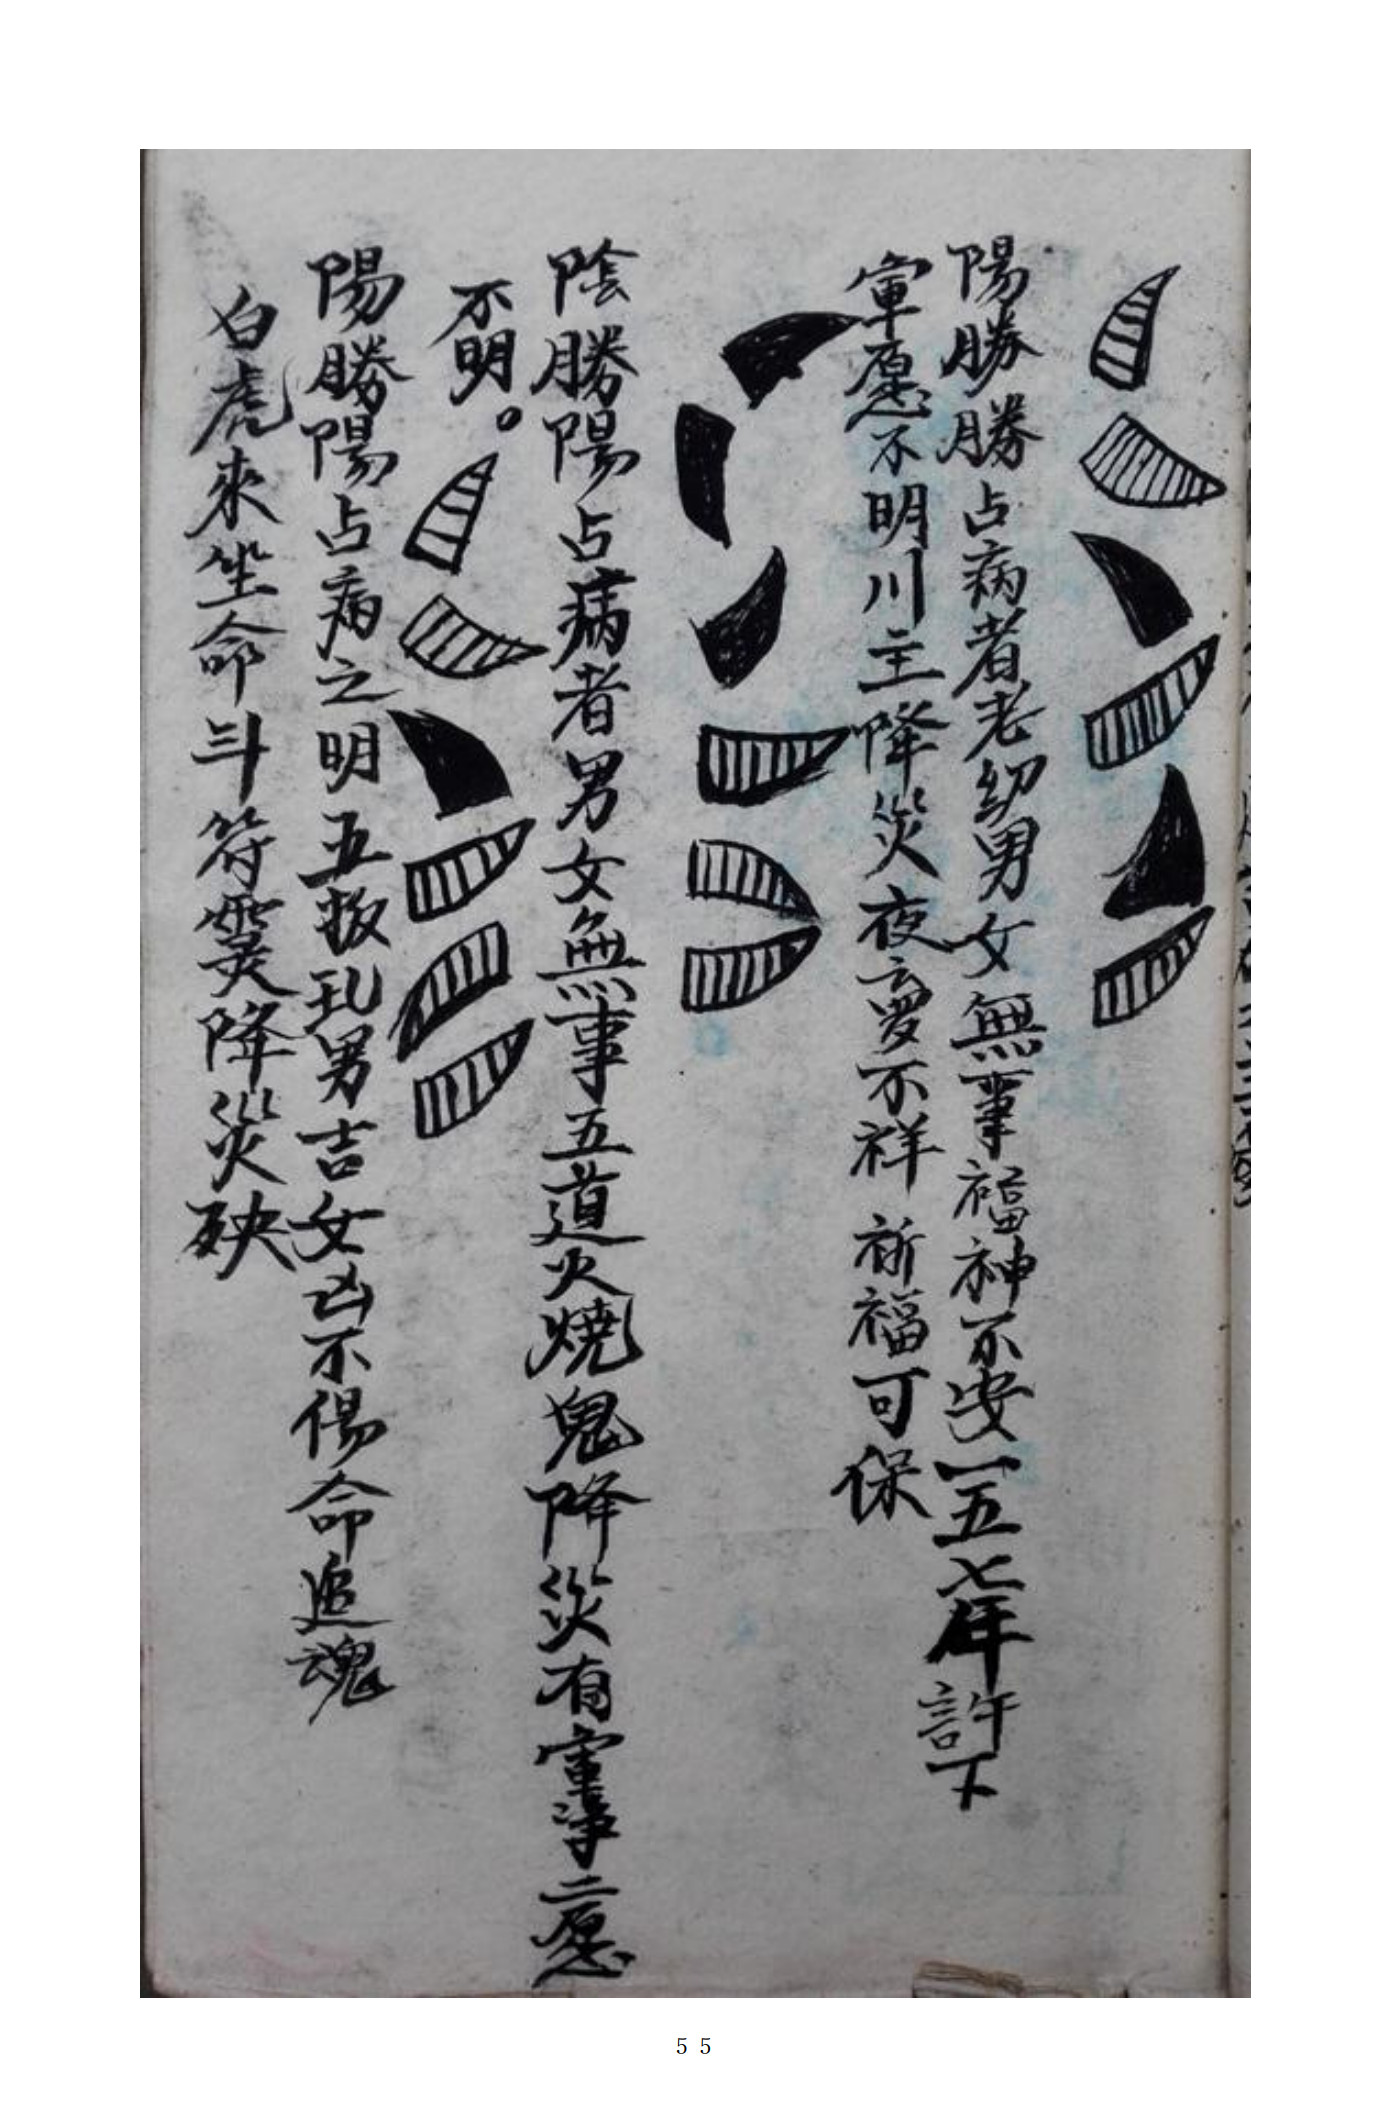 陽勝勝占病者老幼男女無事福神不安一五七年許下
愿不明川主降災夜夢不祥祈福可保
陰勝陽占病者男女無事五道火燒鬼降災有二愿
不明。
陽勝陽占病之明五叛乱男吉女凶不傷命追魂
白虎來坐命斗符靈降災殃
55